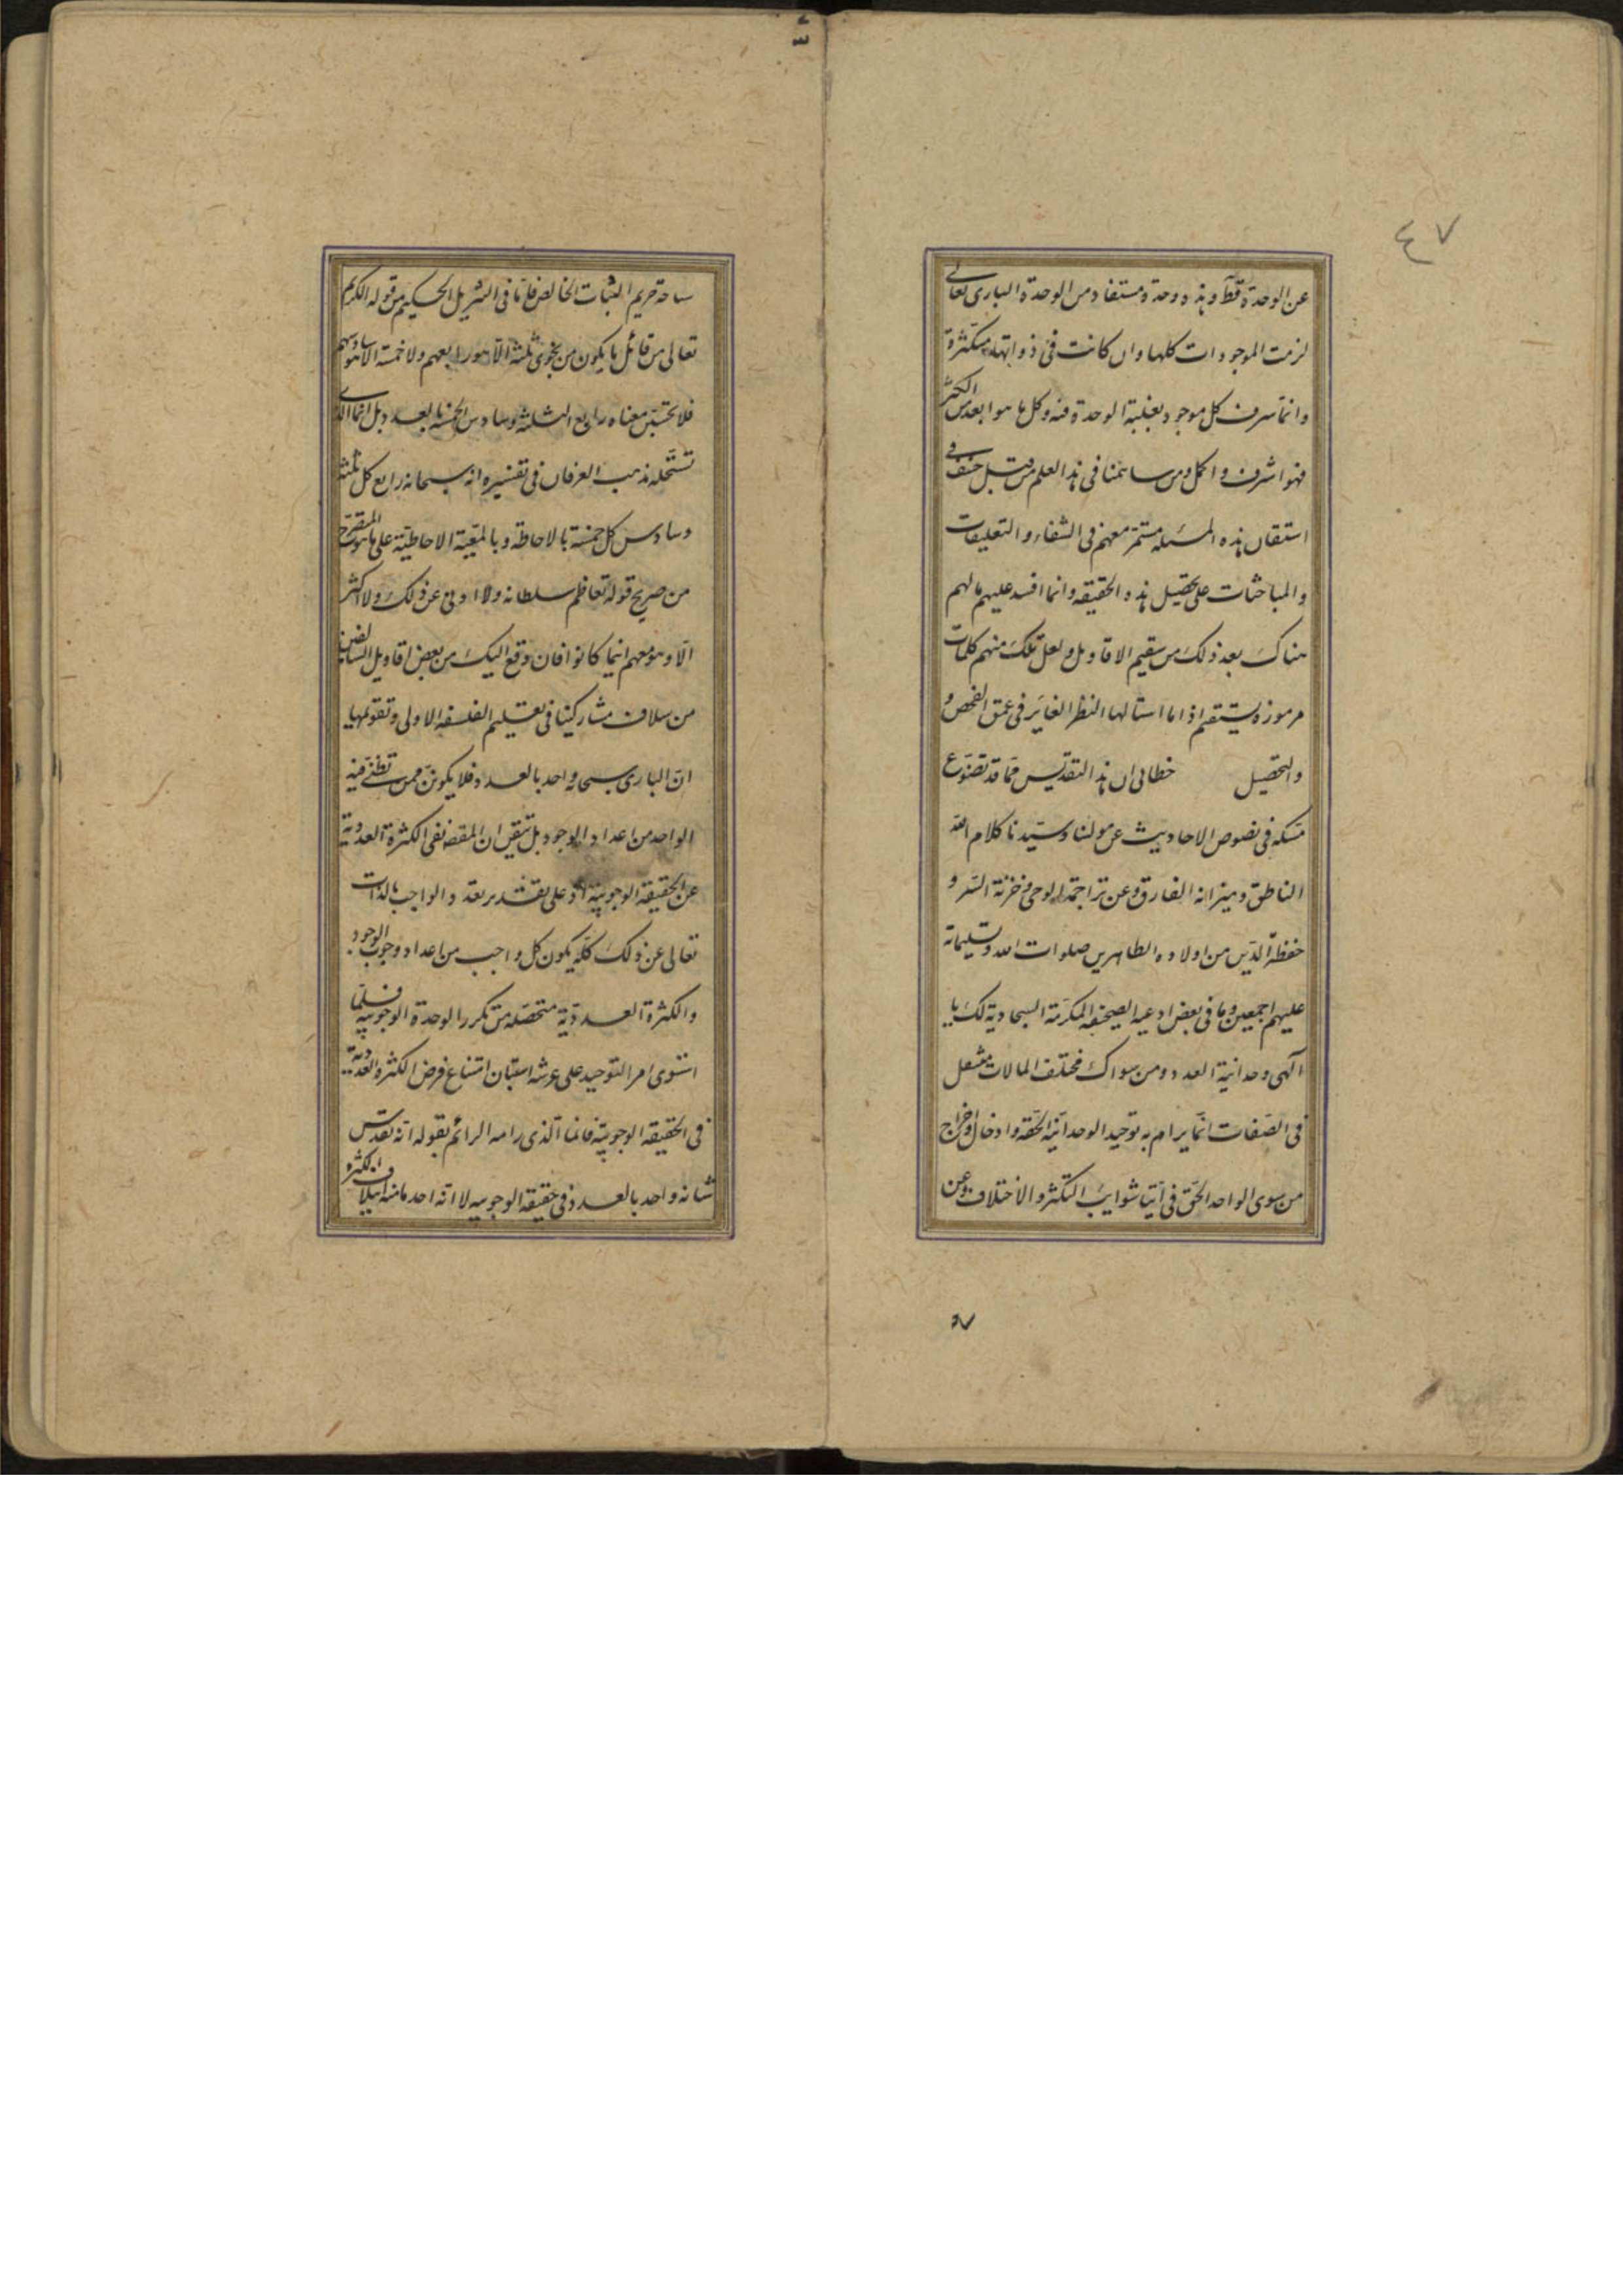 ٤٧
عن الوحدة قط وهذه وحدة مستفاد من الوحدة البارى تعالى
لزمت الموجودات كلها وان كانت فى ذواتها متكثرة
وانما شرف كل موجود بغلبة الوحدة فيه وكل ما هو ابعد من الكثرة
فهو اشرف واكمل ومن ساهمنا فى هذا العلم من قبل خفى
استقان هذه المسئله مستمر معهم فى الشفاء والتعليقات
والمباحثات على تحصيل هذه الحقيقه وانما افسد عليهم مالهم
هناك بعد ذلك من سقيم الاقاويل ولعل تلك منهم كلمات
مرموزة يستقيم اذا ما استالها النظر الغاير فى عمق الفحص و
والتحصيل خطابى ان هذا التقديس مما قد تضوع
مسكه فى نصوص الاحاديث عن مولنا وسيدنا كلام الله
الناطق وميزانه الفارق وعن تراجمة الوحى وخزنة السر و
حفظة الدين من اولاده الطاهرين صلوات الله وتسليماته
عليهم اجمعين وما فى بعض ادعيه الصحيفه المكرمة السجادية لك يا
الهى وحدانية العدد ومن سواك مختلف الحالات متنقل
فى الصفات انما يرام به توحيد الوحدانية الحقه وادخال واخراج
من سوى الواحد الحق فى شوايب التكثر والاختلاف وعن
٧
ساحة حريم الثبات الخالص فاما فى التنزيل الحكيم من قوله الكريم
تعالى من قائل ما يكون من نجوى ثلثة الا هو رابعهم ولا خمسة الا هو سادسهم
فلا تحسبن معناه رابع الثلثة وسادس الخمسة بالعدد بل انما الذى
تستحله مذهب العرفان فى تفسيره انه سبحانه رابع كل ثلثة
وسادس كل خمسة بالاحاطة وبالمعية الاحاطية على ما هو المقترح
من صريح قوله تعاظم سلطانه ولا ادنى عن ذلك ولا اكثر
الا وهو معهم اينما كانوا فان وقع اليك من بعض اقاويل السالفين
من سلاف مشاركينا فى تعليم الفلسفه الاولى وتقويمها
ان البارى سبحانه واحد بالعدد فلا يكونن ممن تظنى فيه
الواحد من اعداد الوجود بل تيقن ان المقصد نفى الكثرة العددية
عن الحقيقة الوجوبية اذ على تقدير تعدد الواجب بالذات
تعالى عن ذلك كله يكون كل واجب من اعداد وجوب الوجود
والكثرة العددية متحصله من تكرر الوحدة الوجوبية فلما
استوى امر التوحيد على عرشه استبان امتناع فرض الكثرة العددية
فى الحقيقه الوجوبية فانما الذى رامه الرائم بقوله انه تقدس
شانه واحد بالعدد فى حقيقة الوجوبيه لا انه احد ما منه ايتلاف الكثرة